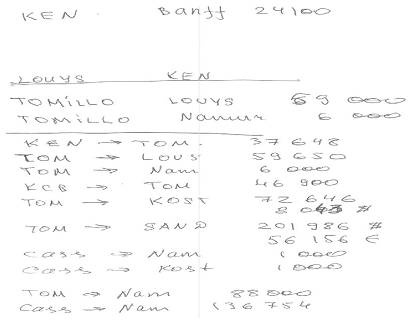 KEN Banff 24100
LOUYS KEN
TOMiLLO LOUYS 59 000
TOMILLO Namur 6 000
KEN → TOM. 37 648
TOM → LOUS 59 650
TOM → Nam 6 000
KCB → TOM 46 900
TOM → KOST 72 646
8 043 #
TOM → SAND 201 986 #
56 156 €
Cass → Nam 1 000
Cass → Kost 1 000
TOM → Nam 88 000
Cass → Nam 136 754